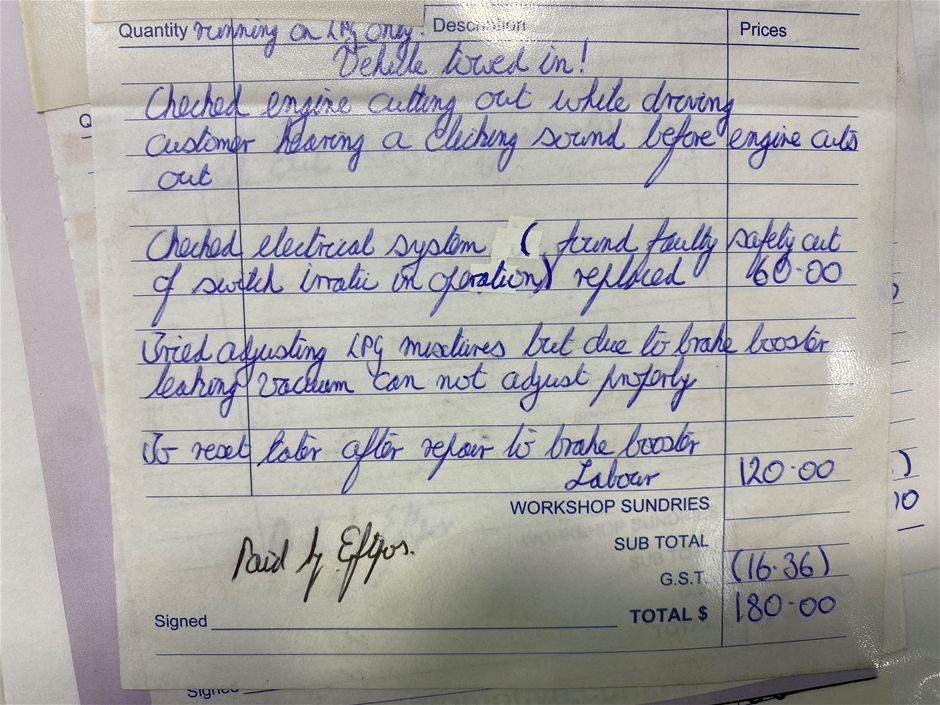 Quantity running on LPG only! Description Prices
Vehicle towed in!
Checked engine cutting out while driving
customer hearing a clicking sound before engine cuts
out
Checked electrical system ( found faulty safety cut
of switch irratic in operation) replaced 60.00
Tried adjusting LPG mixtures but due to brake booster
leaking vacuum can not adjust properly
To reset later after repair to brake booster
Labour 120.00
WORKSHOP SUNDRIES
SUB TOTAL
Paid by Eftpos.
G.S.T. (16.36)
Signed TOTAL $ 180.00
Signed